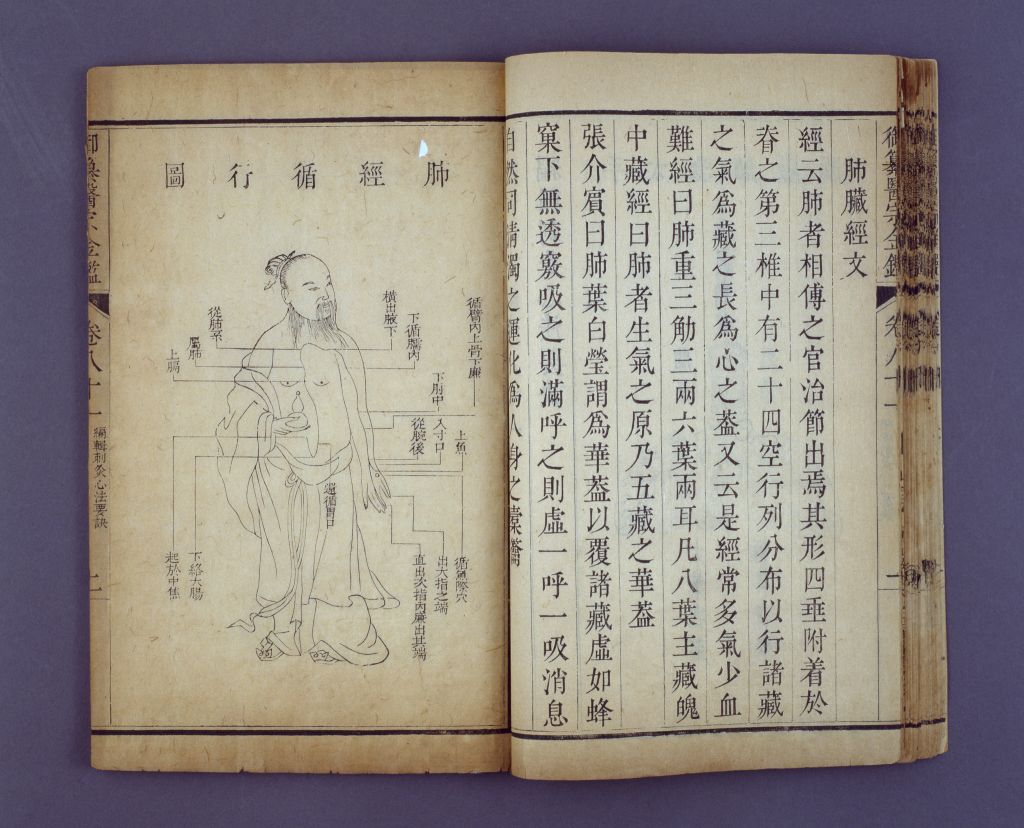 御纂醫宗金鑑
卷八十一
二
肺臟經文
經云肺者相傅之官治節出焉其形四垂附着於
脊之第三椎中有二十四空行列分布以行諸藏
之氣爲藏之長爲心之葢又云是經常多氣少血
難經曰肺重三觔三兩六葉兩耳凡八葉主藏魄
中藏經曰肺者生氣之原乃五藏之華葢
張介賓曰肺葉白瑩謂爲華葢以覆諸藏虛如蜂
窠下無透竅吸之則滿呼之則虛一呼一吸消息
自然司清濁之運化爲人身之橐籥
肺經循行圖
循臂內上骨下廉
下循臑內
橫出腋下
從肺系
屬肺
上膈
下肘中
入寸口
從腕後
上魚
還循胃口
循魚際穴
出大指之端
直出次指內廉出其端
下絡大腸
起於中焦
御纂醫宗金鑑
卷八十一
編輯刺灸心法要訣
二